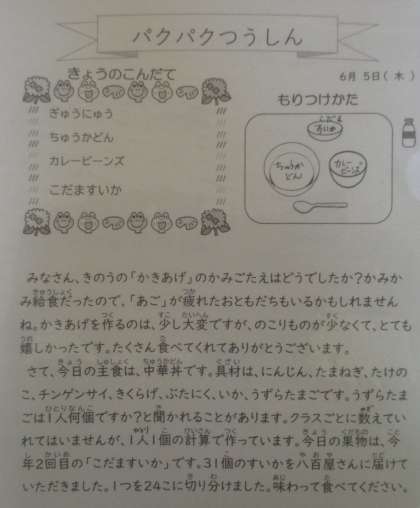 パクパクつうしん
きょうのこんだて
6月 5日(木)
ぎゅうにゅう
ちゅうかどん
カレービーンズ
こだますいか
もりつけかた
こだま
すいか
ちゅうか
どん
カレー
ビーンズ
みなさん、きのうの「かきあげ」のかみごたえはどうでしたか?かみか
み給食だったので、「あご」が疲れたおともだちもいるかもしれません
ね。かきあげを作るのは、少し大変ですが、のこりものが少なくて、とても
嬉しかったです。たくさん食べてくれてありがとうございます。
さて、今日の主食は、中華丼です。具材は、にんじん、たまねぎ、たけの
こ、チンゲンサイ、きくらげ、ぶたにく、いか、うずらたまごです。うずらたま
ごは1人何個ですか?と聞かれることがあります。クラスごとに数えてい
れてはいませんが、1人1個の計算で作っています。今日の果物は、今
年2回目の「こだますいか」です。31個のすいかを八百屋さんに届けて
いただきました。1つを24こに切り分けました。味わって食べてください。